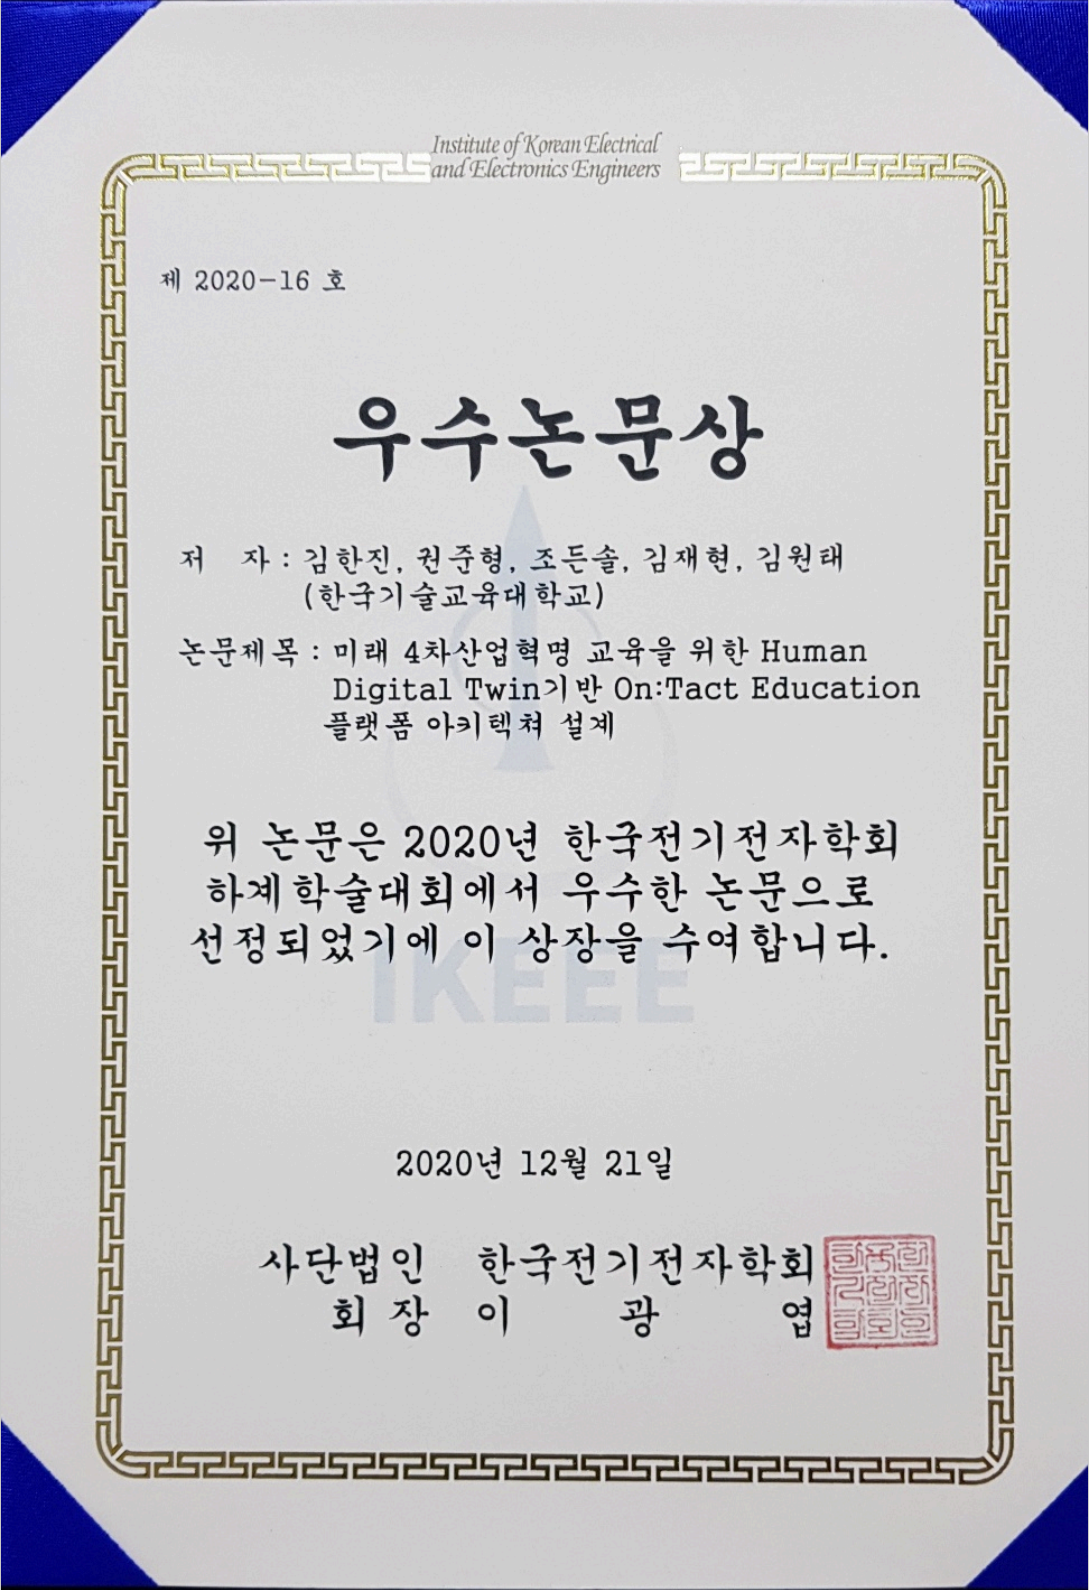 Institute of Korean Electrical
and Electronics Engineers
제 2020-16 호
우수논문상
저 자 : 김한진, 권준형, 조든솔, 김재현, 김원태
(한국기술교육대학교)
논문제목 : 미래 4차산업혁명 교육을 위한 Human
Digital Twin기반 On:Tact Education
플랫폼 아키텍쳐 설계
위 논문은 2020년 한국전기전자학회
하계학술대회에서 우수한 논문으로
선정되었기에 이 상장을 수여합니다.
IKEEE
2020년 12월 21일
사단법인 한국전기전자학회
회장 이 광 엽